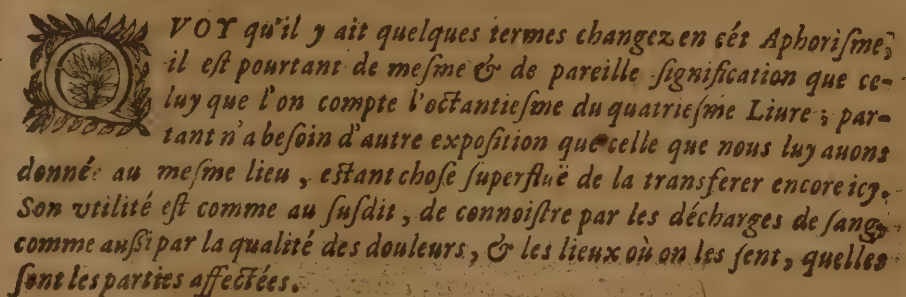 QVOY qu'il y ait quelques termes changez en cét Aphoriſme,
il eſt pourtant de meſme & de pareille ſignification que ce-
luy que l'on compte l'octantieſme du quatrieſme Liure ; par-
tant n'a beſoin d'autre expoſition que celle que nous luy auons
donnée au meſme lieu , eſtant choſe ſuperfluë de la transferer encore icy.
Son vtilité eſt comme au ſuſdit , de connoiſtre par les décharges de ſang,
comme auſſi par la qualité des douleurs , & les lieux où on les ſent , quelles
ſont les parties affectées.